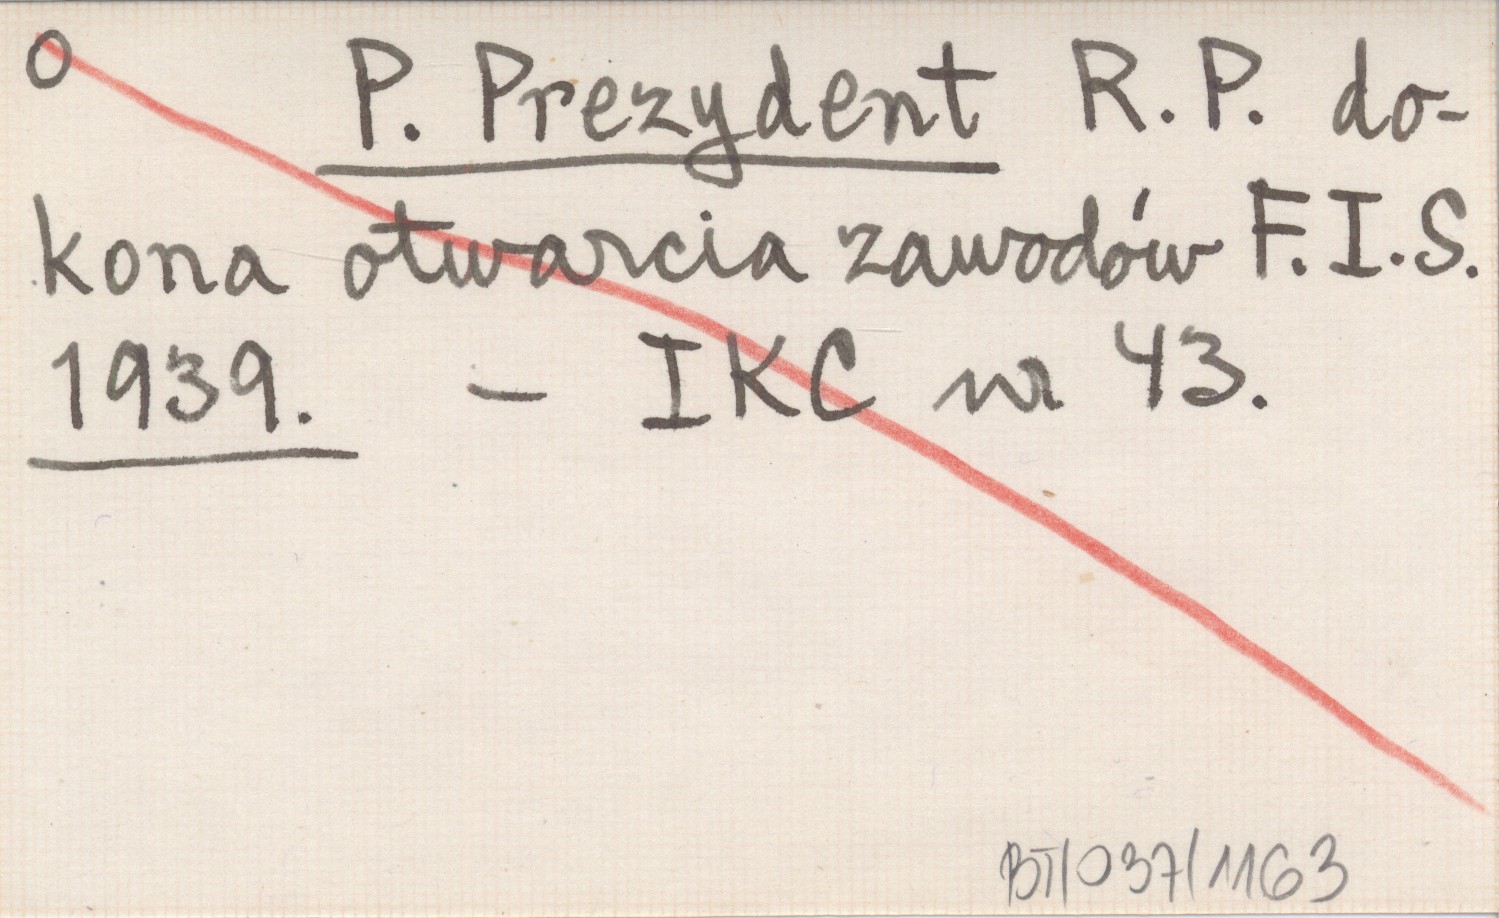 O P. Prezydent R.P. do-
kona otwarcia zawodów F.I.S.
1939. – IKC nr 43.
BT/037/1163